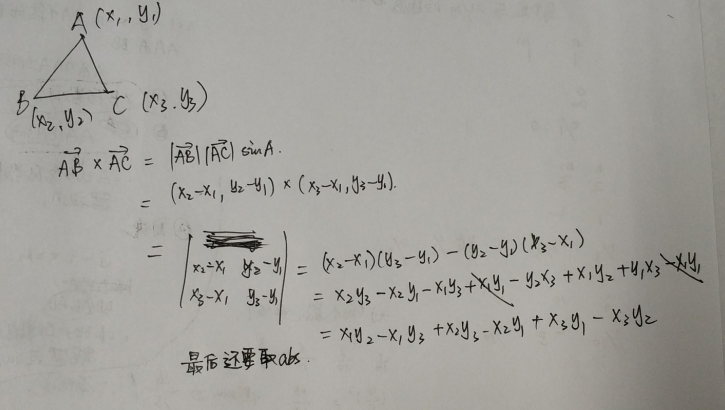 A (x₁, y₁)
B
C (x₃, y₃)
(x₂, y₂)
AB × AC = |AB| |AC| sinA.
= (x₂-x₁, y₂-y₁) × (x₃-x₁, y₃-y₁).
= | x₂-x₁ y₂-y₁ | = (x₂-x₁)(y₃-y₁) - (y₂-y₁)(x₃-x₁)
| x₃-x₁ y₃-y₁ | = x₂y₃ - x₂y₁ - x₁y₃ + x₁y₁ - y₂x₃ + x₁y₂ + y₁x₃ - x₁y₁
= x₁y₂ - x₁y₃ + x₂y₃ - x₂y₁ + x₃y₁ - x₃y₂
最后还要取abs.